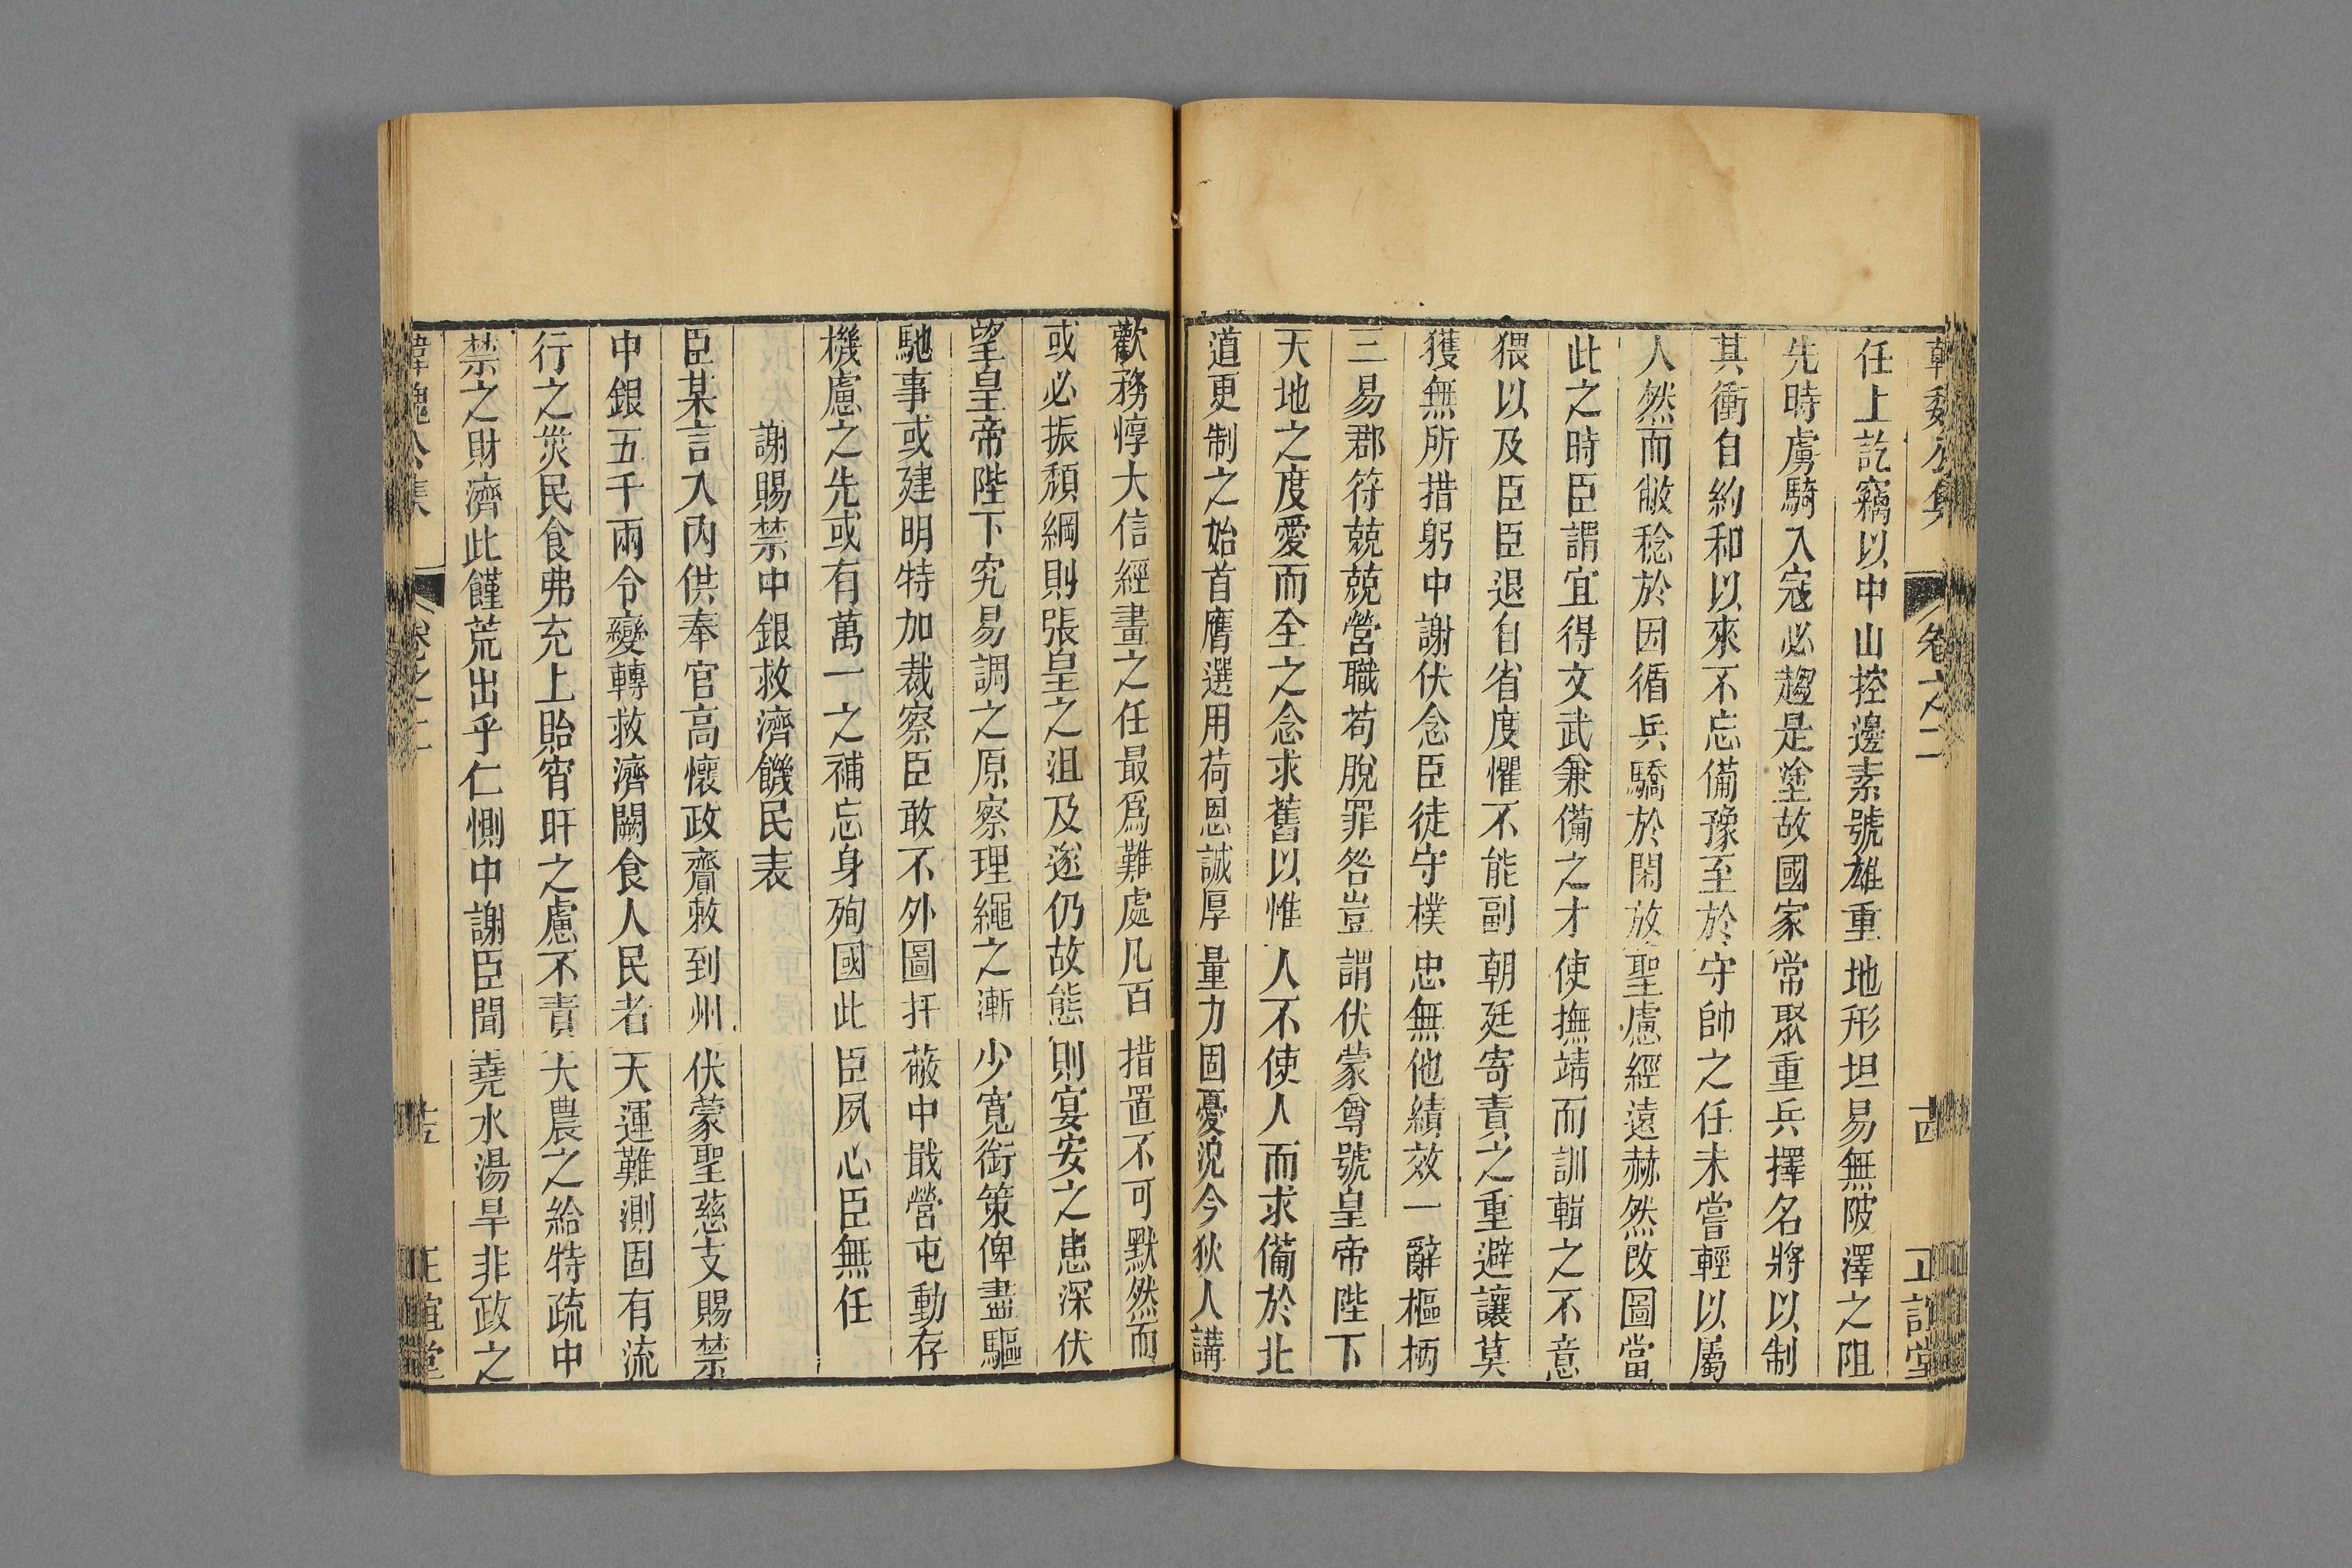 韓魏公集 卷之二 十四 正誼堂
任上訖竊以中山控邊素號雄重地形坦易無陂澤之阻
先時虜騎入寇必趨是塗故國家常聚重兵擇名將以制
其衝自約和以來不忘備豫至於守帥之任未嘗輕以屬
人然而敝稔於因循兵驕於閑放聖慮經遠赫然改圖當
此之時臣謂宜得文武兼備之才使撫靖而訓輯之不意
猥以及臣臣退自省度懼不能副朝廷寄責之重避讓莫
獲無所措躬中謝伏念臣徒守樸忠無他績效一辭樞柄
三易郡符兢兢營職苟脫罪咎豈謂伏蒙尊號皇帝陛下
天地之度愛而全之念求舊以惟人不使人而求備於北
道更制之始首膺選用荷恩誠厚量力固憂况今狄人講
歡務惇大信經畫之任最爲難處凡百措置不可默然而
或必振頹綱則張皇之沮及遂仍故態則宴安之患深伏
望皇帝陛下究易調之原察理繩之漸少寬銜策俾盡驅
馳事或建明特加裁察臣敢不外圖扞蔽中戢營屯動存
機慮之先或有萬一之補忘身殉國此臣夙心臣無任
謝賜禁中銀救濟饑民表
臣某言入內供奉官高懷政齎敕到州伏蒙聖慈支賜禁
中銀五千兩令變轉救濟闕食人民者天運難測固有流
行之災民食弗充上貽宵旰之慮不責大農之給特疏中
禁之財濟此饉荒出乎仁惻中謝臣聞堯水湯旱非政之
韓魏公集 卷之二 十五 正誼堂